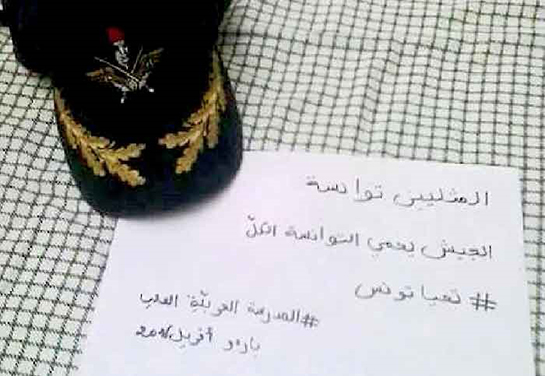 المثليين توانسة
الجيش يحمي التوانسة الكلّ
# تحيا تونس
#المدرسة الحربيّة العليا
باردو أفريل 2016